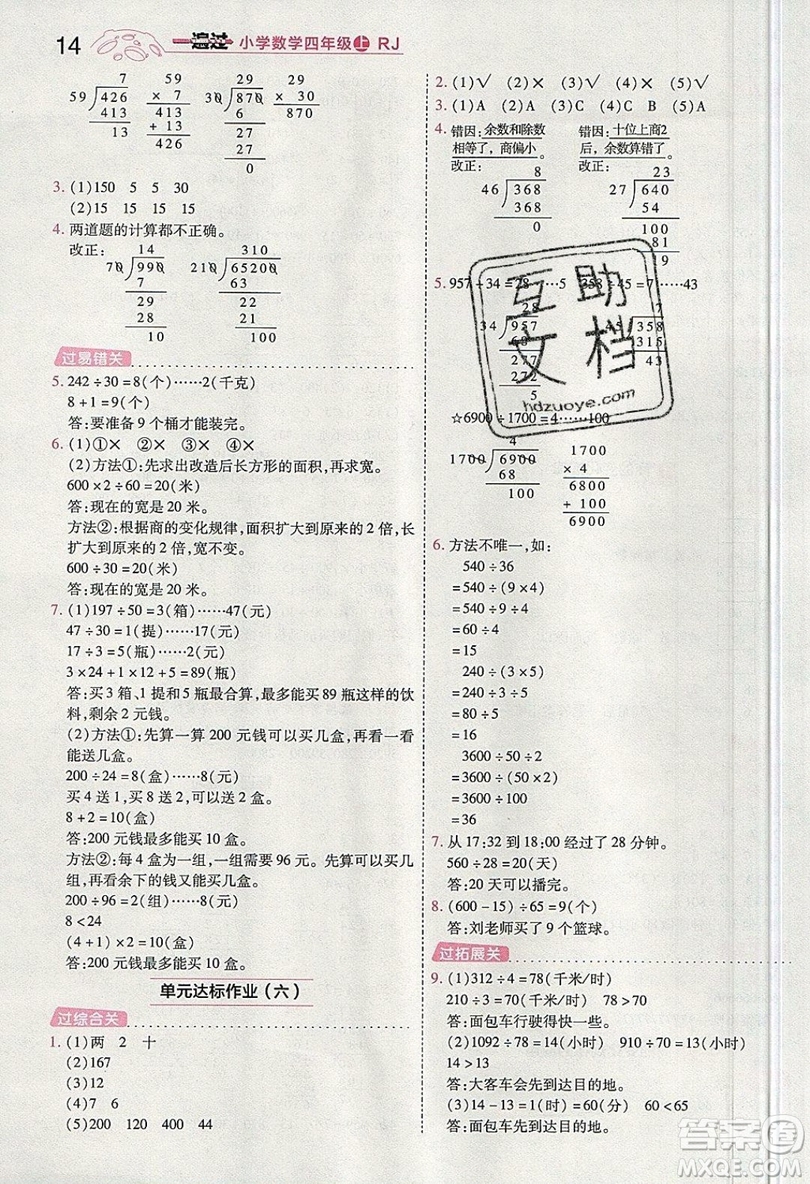 14 一遍过 小学数学四年级上 RJ
7
59)426
413
13
59
× 7
413
+ 13
426
29
30)870
6
27
27
0
29
× 30
870
3. (1)150 5 5 30
(2)15 15 15 15
4. 两道题的计算都不正确。
改正:
14
70)990
7
29
28
10
310
210)65200
63
22
21
100
过易错关
5. 242÷30=8(个)……2(千克)
8+1=9(个)
答:要准备 9 个桶才能装完。
6. (1)①× ②× ③× ④×
(2)方法①:先求出改造后长方形的面积,再求宽。
600×2÷60=20(米)
答:现在的宽是 20 米。
方法②:根据商的变化规律,面积扩大到原来的 2 倍,长
扩大到原来的 2 倍,宽不变。
600÷30=20(米)
答:现在的宽是 20 米。
7. (1)197÷50=3(箱)……47(元)
47÷30=1(提)……17(元)
17÷3=5(瓶)……2(元)
3×24+1×12+5=89(瓶)
答:买 3 箱、1 提和 5 瓶最合算,最多能买 89 瓶这样的饮
料,剩余 2 元钱。
(2)方法①:先算一算 200 元钱可以买几盒,再看一看
能送几盒。
200÷24=8(盒)……8(元)
买 4 送 1,买 8 盒送 2 盒。
8+2=10(盒)
答:200 元钱最多能买 10 盒。
方法②:每 4 盒为一组,一组需要 96 元。先算可以买几
组,再看剩下的钱又能买几盒。
200÷96=2(组)……8(元)
8<24
(4+1)×2=10(盒)
答:200 元钱最多能买 10 盒。
单元达标作业(六)
过综合关
1. (1)两 2 十
(2)167
(3)12
(4)7 6
(5)200 120 400 44
2. (1)√ (2)× (3)× (4)× (5)√
3. (1)A (2)A (3)C (4)C B (5)A
4. 错因:余数和除数
相等了,商偏小。
改正:
8
46)368
368
0
错因:十位上商2
后,余数算错了。
改正:
23
27)640
54
100
81
19
5. 957÷34=28……5 358÷45=7……43
28
34)957
68
277
272
5
7
45)358
315
43
☆6900÷1700=4……100
4
1700)6900
68
100
1700
× 4
6800
+ 100
6900
6. 方法不唯一,如:
540÷36
=540÷(9×4)
=540÷9÷4
=60÷4
=15
240÷(3×5)
=240÷3÷5
=80÷5
=16
3600÷50÷2
=3600÷(50×2)
=3600÷100
=36
7. 从 17:32 到 18:00 经过了 28 分钟。
560÷28=20(天)
答:20 天可以播完。
8. (600-15)÷65=9(个)
答:刘老师买了 9 个篮球。
过拓展关
9. (1)312÷4=78(千米/时)
210÷3=70(千米/时) 78>70
答:面包车行驶得快一些。
(2)1092÷78=14(小时) 910÷70=13(小时)
14>13
答:大客车会先到达目的地。
(3)14-13=1(时) 1时=60(分) 60<65
答:面包车会先到达目的地。
互助
文档
hdzuoye.com
答案圈
MXQE.COM